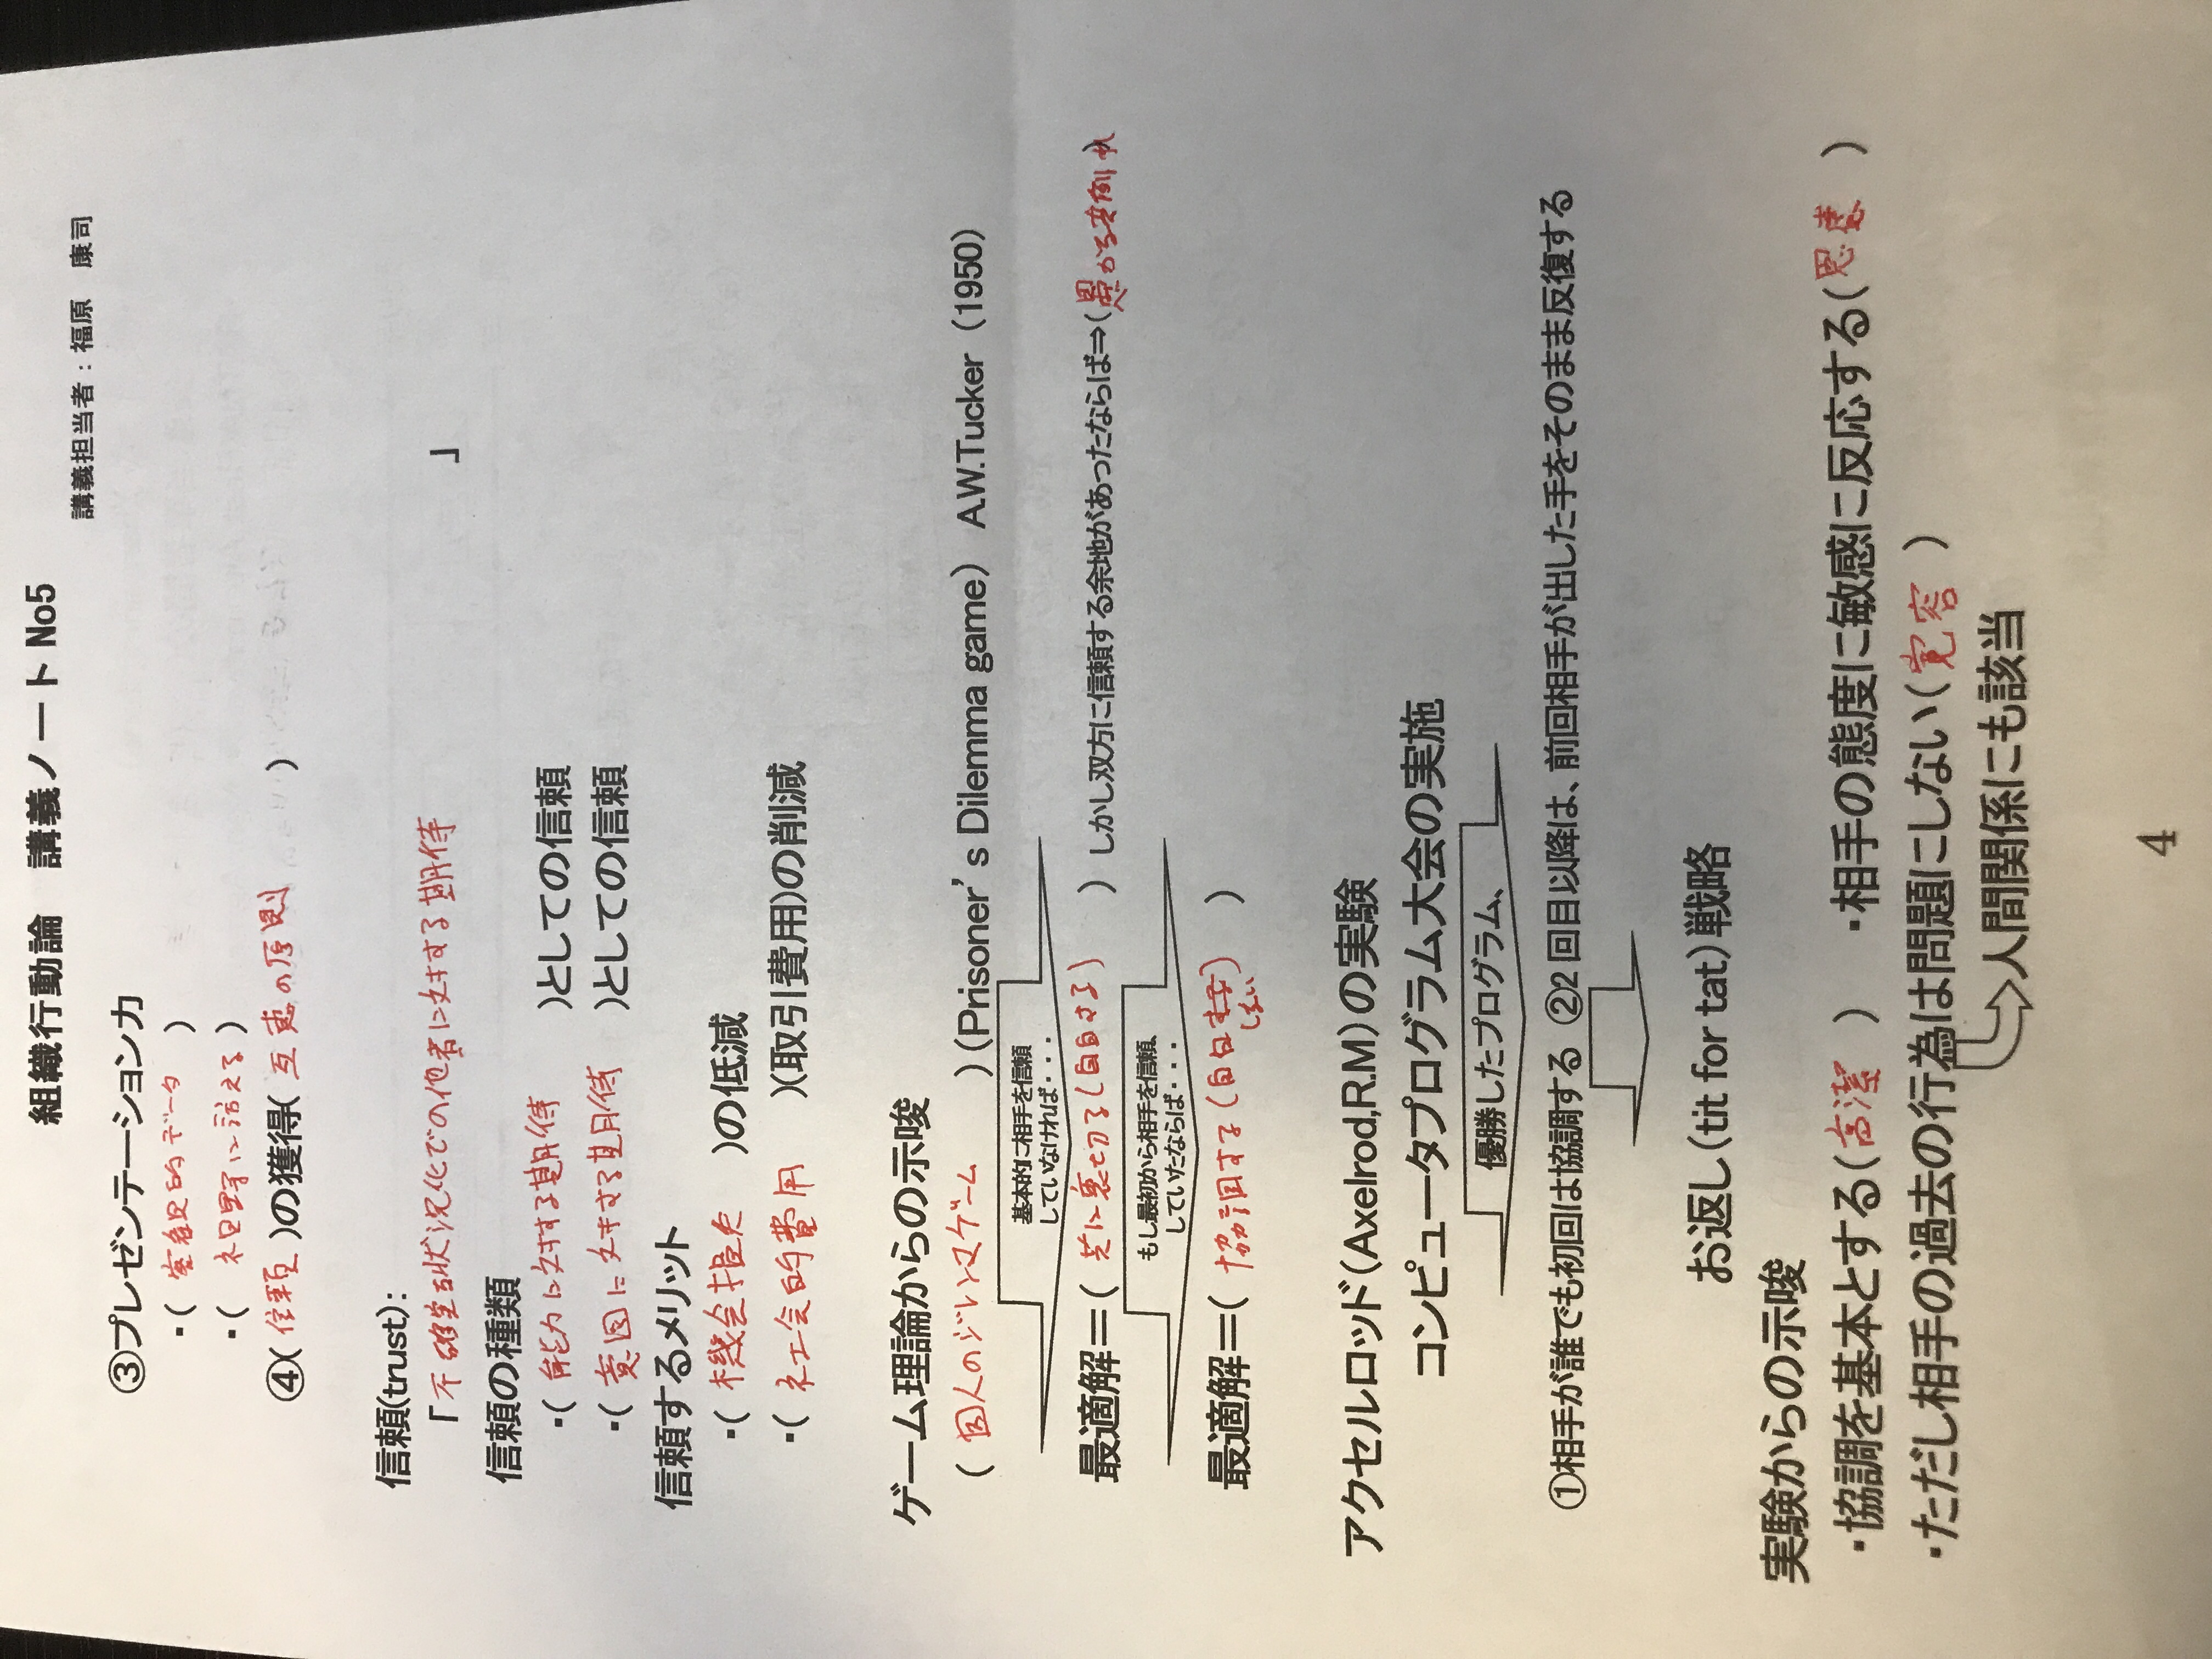 組織行動論　講義ノート No5
講義担当者：福原　康司
③プレゼンテーション力
・( 客観的データ )
・( 視野に訴える )
④( 信頼 )の獲得( 互恵の原則 )
信頼(trust):
「不確実な状況化での他者に対する期待」
信頼の種類
・( 能力に対する期待 )としての信頼
・( 意図に対する期待 )としての信頼
信頼するメリット
・( 機会損失 )の低減
・( 社会的費用 )(取引費用)の削減
ゲーム理論からの示唆
( 囚人のジレンマゲーム )(Prisoner's Dilemma game) A.W.Tucker (1950)
基本的に相手を信頼
していなければ・・・
最適解＝( 共に裏切る(自白する) ) しかし双方に信頼する余地があったならば⇒( 愚かな )
もし最初から相手を信頼、
していたならば・・・
最適解＝( 協調する(自白 )
しない
アクセルロッド(Axelrod,R.M)の実験
コンピュータプログラム大会の実施
優勝したプログラム、
①相手が誰でも初回は協調する ②2 回目以降は、前回相手が出した手をそのまま反復する
お返し(tit for tat)戦略
実験からの示唆
・協調を基本とする( 高潔 ) ・相手の態度に敏感に反応する( )
・ただし相手の過去の行為は問題にしない( 寛容 )
人間関係にも該当
4